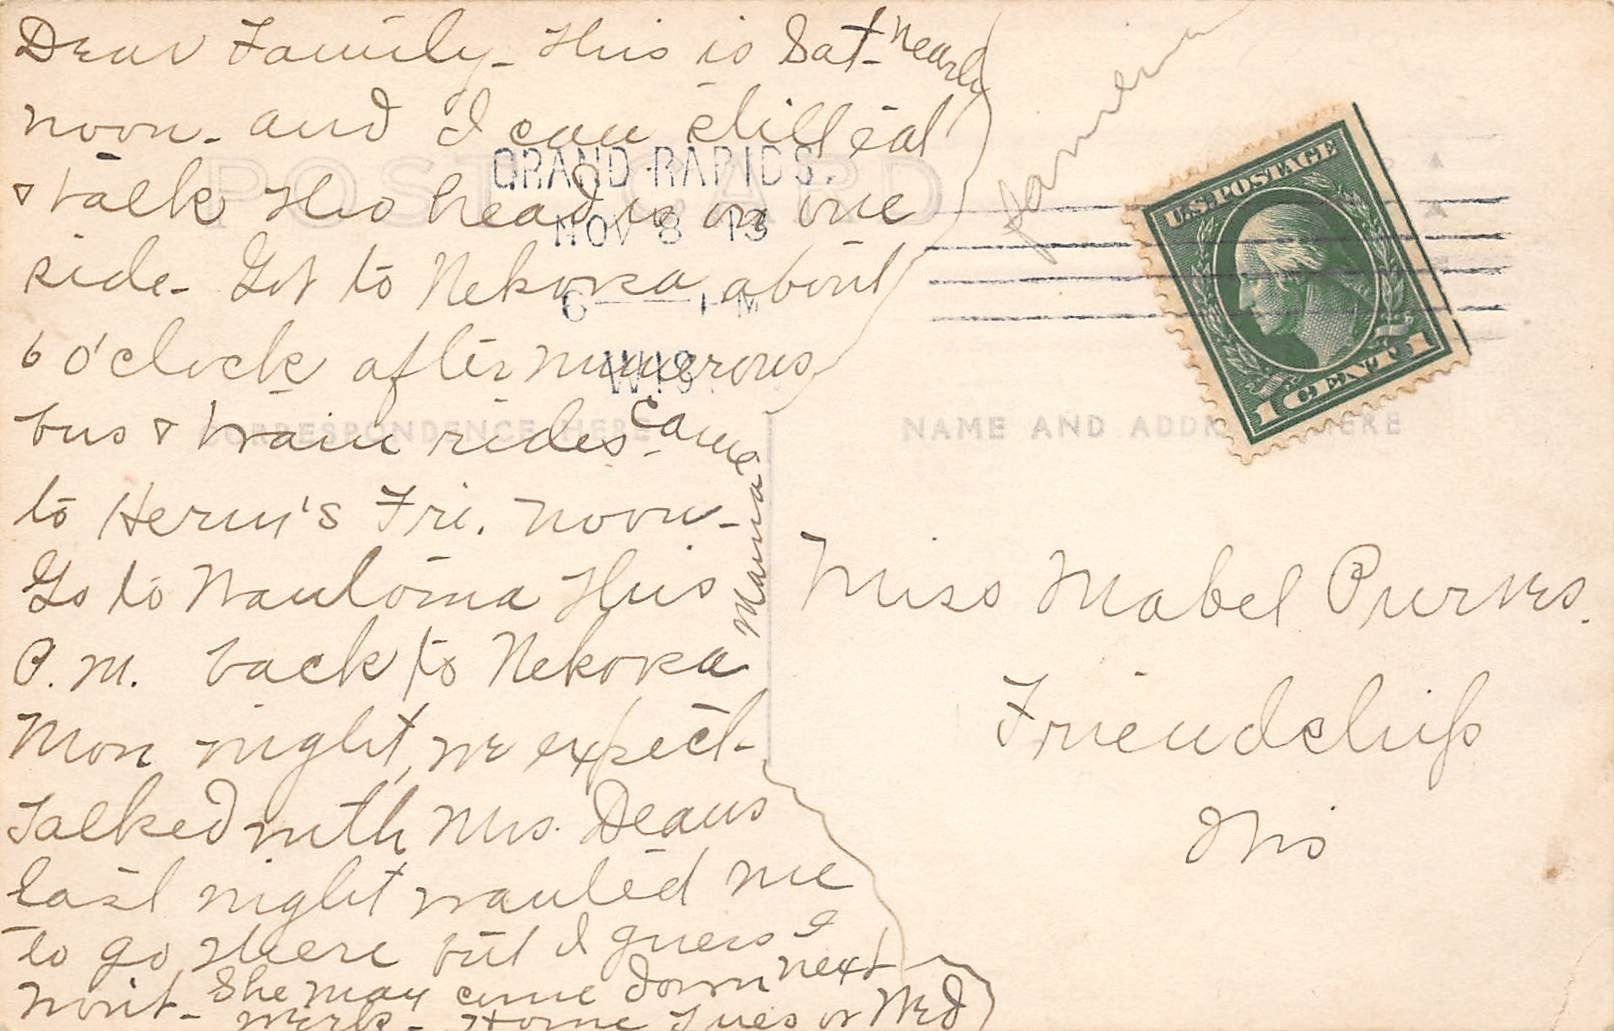 Dear Family- This is Sat- nearly
noon- and I can still eat
& talk tho head is on one
side- Got to Nekoosa about
6 o'clock after numerous
bus & train rides- Came
to Herm's Fri. noon-
Go to Wautoma this
P.M. back to Nekoosa
Mon night, we expect-
Talked with Mrs. Deans
last night wanted me
to go there but I guess I
won't- She may come down next
week- Home Tues or Wed
Mama
POST CARD
CORRESPONDENCE HERE
GRAND RAPIDS.
NOV 8 13
6 - PM
WIS.
NAME AND ADDRESS HERE
U.S. POSTAGE
1 CENT 1
Miss Mabel Purves.
Friendship
Wis